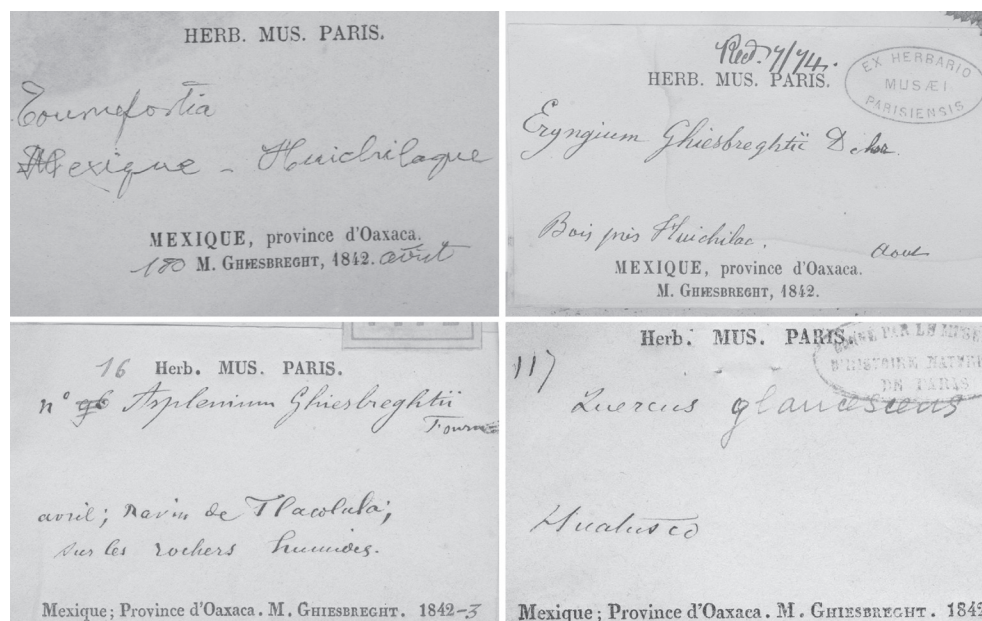 HERB. MUS. PARIS.
Tournefortia
Mexique - Huichilaque
MEXIQUE, province d'Oaxaca.
180 M. GHIESBREGHT, 1842. avril
Red. 7/74.
HERB. MUS. PARIS.
EX HERBARIO
MUSÆI
PARISIENSIS
Eryngium Ghiesbreghtii Dchsr.
Bois près Huichilac.
Aout
MEXIQUE, province d'Oaxaca.
M. GHIESBREGHT, 1842.
16 Herb. MUS. PARIS.
n° Asplenium Ghiesbreghtii
Fourn
avril; Ravin de Tlacolula;
sur les rochers humides.
Mexique; Province d'Oaxaca. M. GHIESBREGHT. 1842-3
Herb. MUS. PARIS.
PAR LE MUSE
D'HISTOIRE NATUR
DE PARIS
117
Quercus glaucescens
Huatusco
Mexique; Province d'Oaxaca. M. GHIESBREGHT. 1842